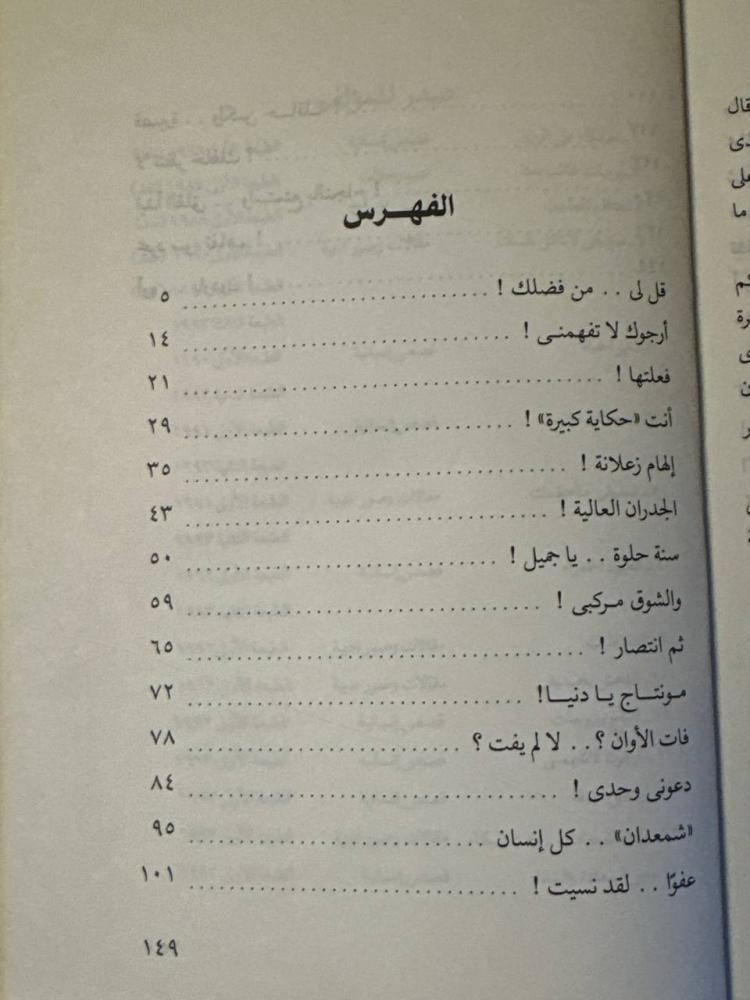 الفهـــرس
قل لى . . من فضلك ! ............................ ٥
أرجوك لا تفهمنى ! ............................ ١٤
فعلتها ! ............................ ٢١
أنت «حكاية كبيرة» ! ............................ ٢٩
إلهام زعلانة ! ............................ ٣٥
الجدران العالية ! ............................ ٤٣
سنة حلوة . . يا جميل ! ............................ ٥٠
والشوق مـركبى ! ............................ ٥٩
ثم انتصار ! ............................ ٦٥
مـونتـــاج يـا دنيـــا! ............................ ٧٢
فات الأوان ؟ . . لا لم يفت ؟ ............................ ٧٨
دعونى وحدى ! ............................ ٨٤
«شمعدان» . . كل إنسان ............................ ٩٥
عفوًا . . لقد نسيت ! ............................ ١٠١
١٤٩